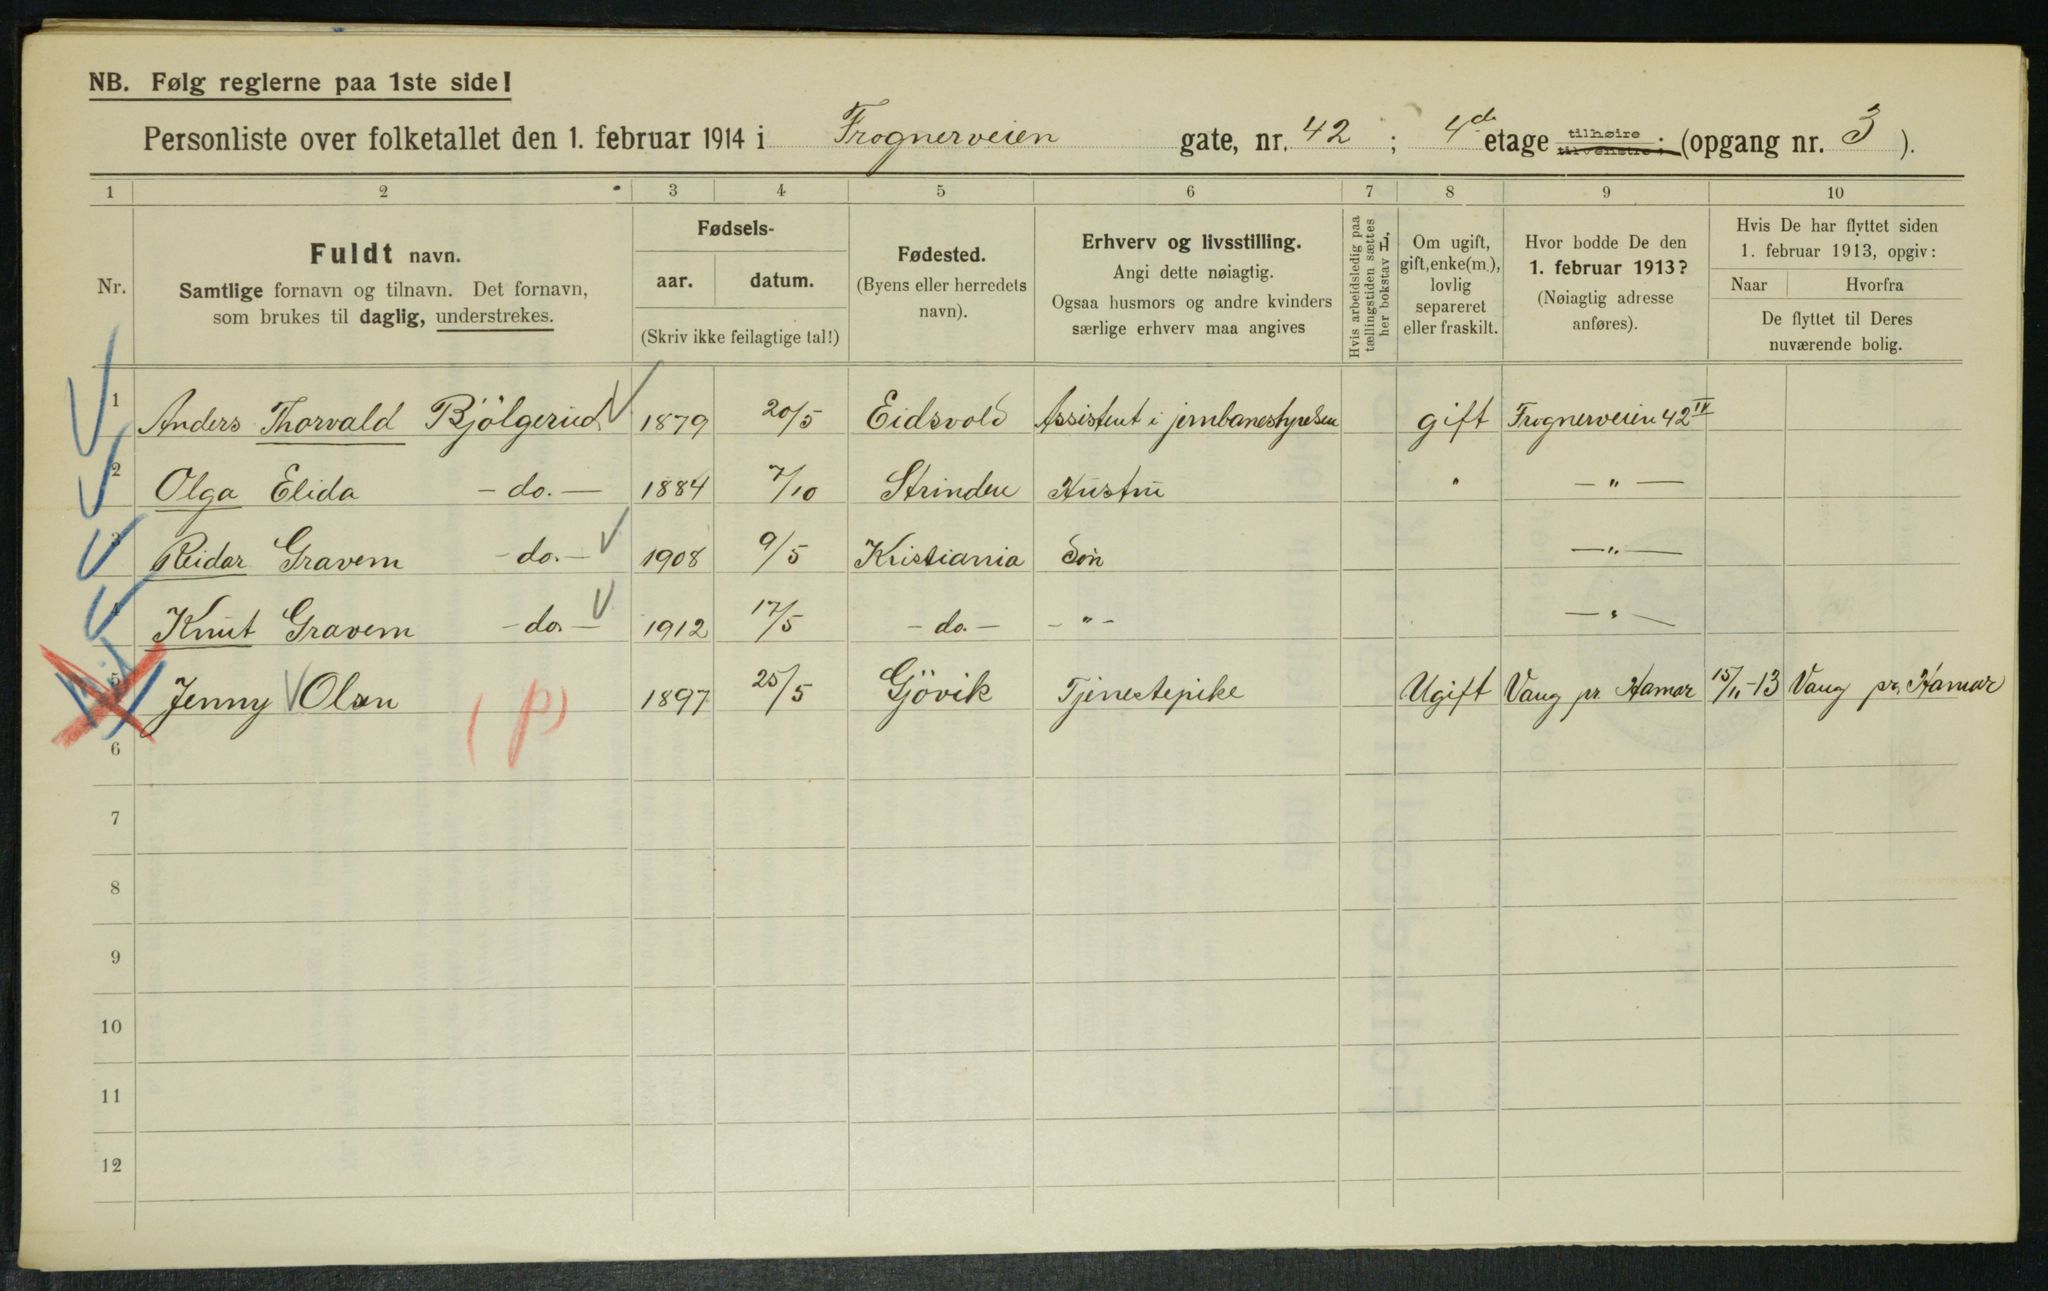 NB. Følg reglerne paa 1ste side!
Personliste over folketallet den 1. februar 1914 i Frognerveien gate, nr. 42 ; 4de etage tilhøire tilvenstre; (opgang nr. 3 ).
1 2 3 4 5 6 7 8 9 10
Nr.
Fuldt navn.
Samtlige fornavn og tilnavn. Det fornavn,
som brukes til daglig, understrekes.
Fødsels-
aar. datum.
(Skriv ikke feilagtige tal!)
Fødested.
(Byens eller herredets
navn).
Erhverv og livsstilling.
Angi dette nøiagtig.
Ogsaa husmors og andre kvinders
særlige erhverv maa angives
Hvis arbeidsledig paa
tællingstiden sættes
her bokstav L.
Om ugift,
gift, enke(m.),
lovlig
separeret
eller fraskilt.
Hvor bodde De den
1. februar 1913?
(Nøiagtig adresse
anføres).
Hvis De har flyttet siden
1. februar 1913, opgiv:
Naar Hvorfra
De flyttet til Deres
nuværende bolig.
1 Anders Thorvald Bjölgerud 1879 20/5 Eidsvold Assistent i jernbanestyrelsen gift Frognerveien 42 IV
2 Olga Elida - do. - 1884 7/10 Strinden Hustru " - " -
3 Reidar Gravem - do. - 1908 9/5 Kristiania Sön - " -
4 Knut Gravem - do. - 1912 17/5 - do. - - " - - " -
5 Jenny Olsen (p) 1897 25/5 Gjövik Tjenestepike Ugift Vang pr Hamar 15/11-13 Vang pr. Hamar
6
7
8
9
10
11
12